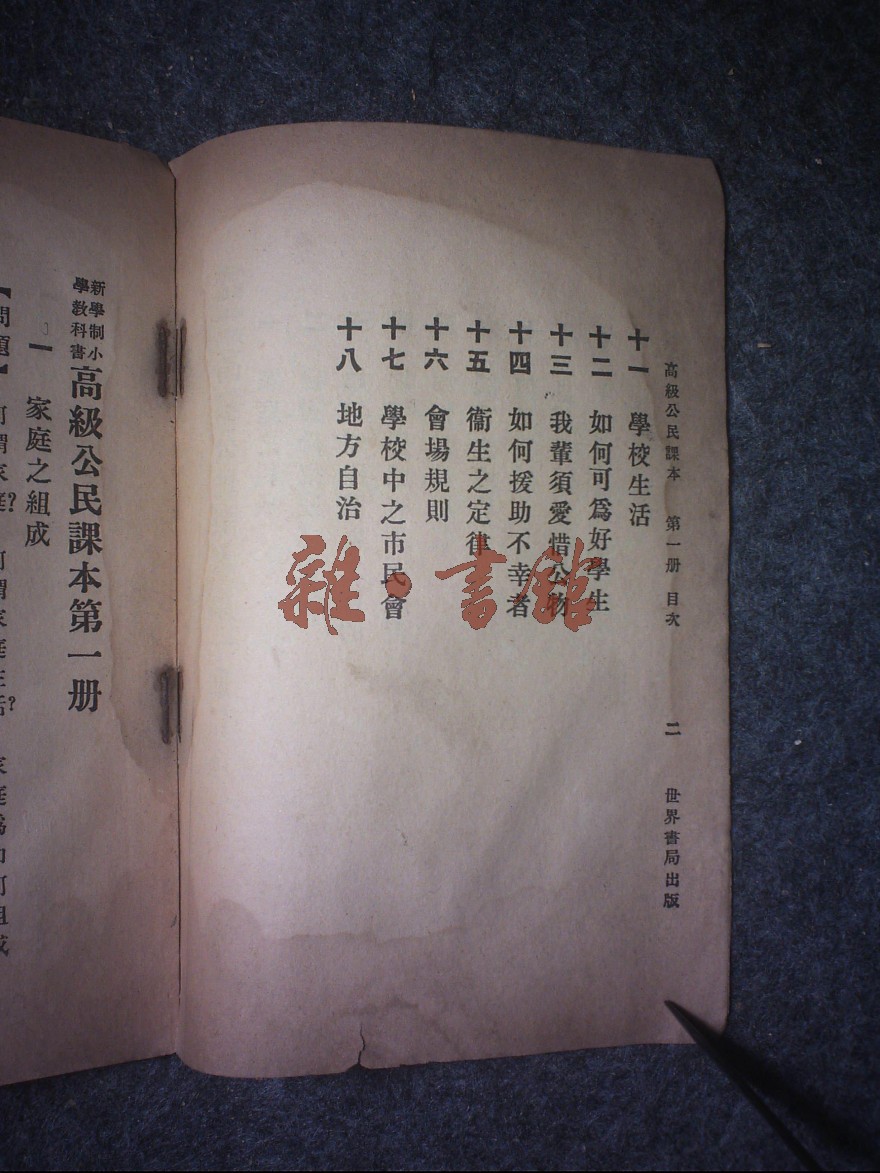 高級公民課本 第一册 目次 二 世界書局出版
十一 學校生活
十二 如何可爲好學生
十三 我輩須愛惜公物
十四 如何援助不幸者
十五 衞生之定律
十六 會場規則
十七 學校中之市民會
十八 地方自治
雜·書館
新學制小學教科書 高級公民課本第一册
一 家庭之組成